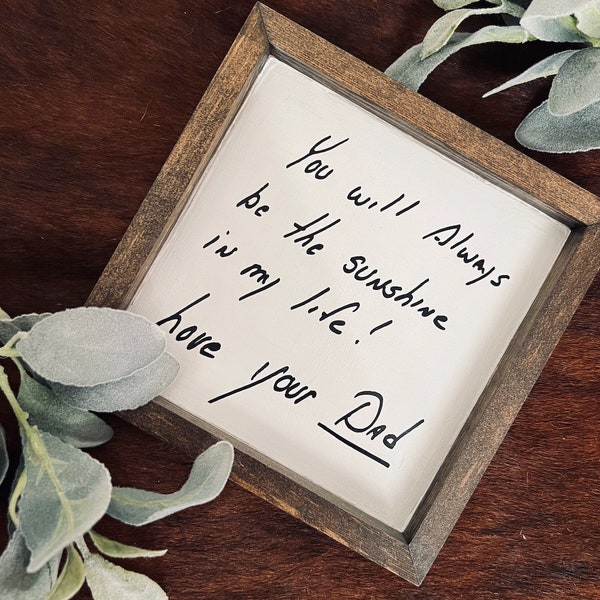 You will Always
be the sunshine
in my life!
Love your Dad